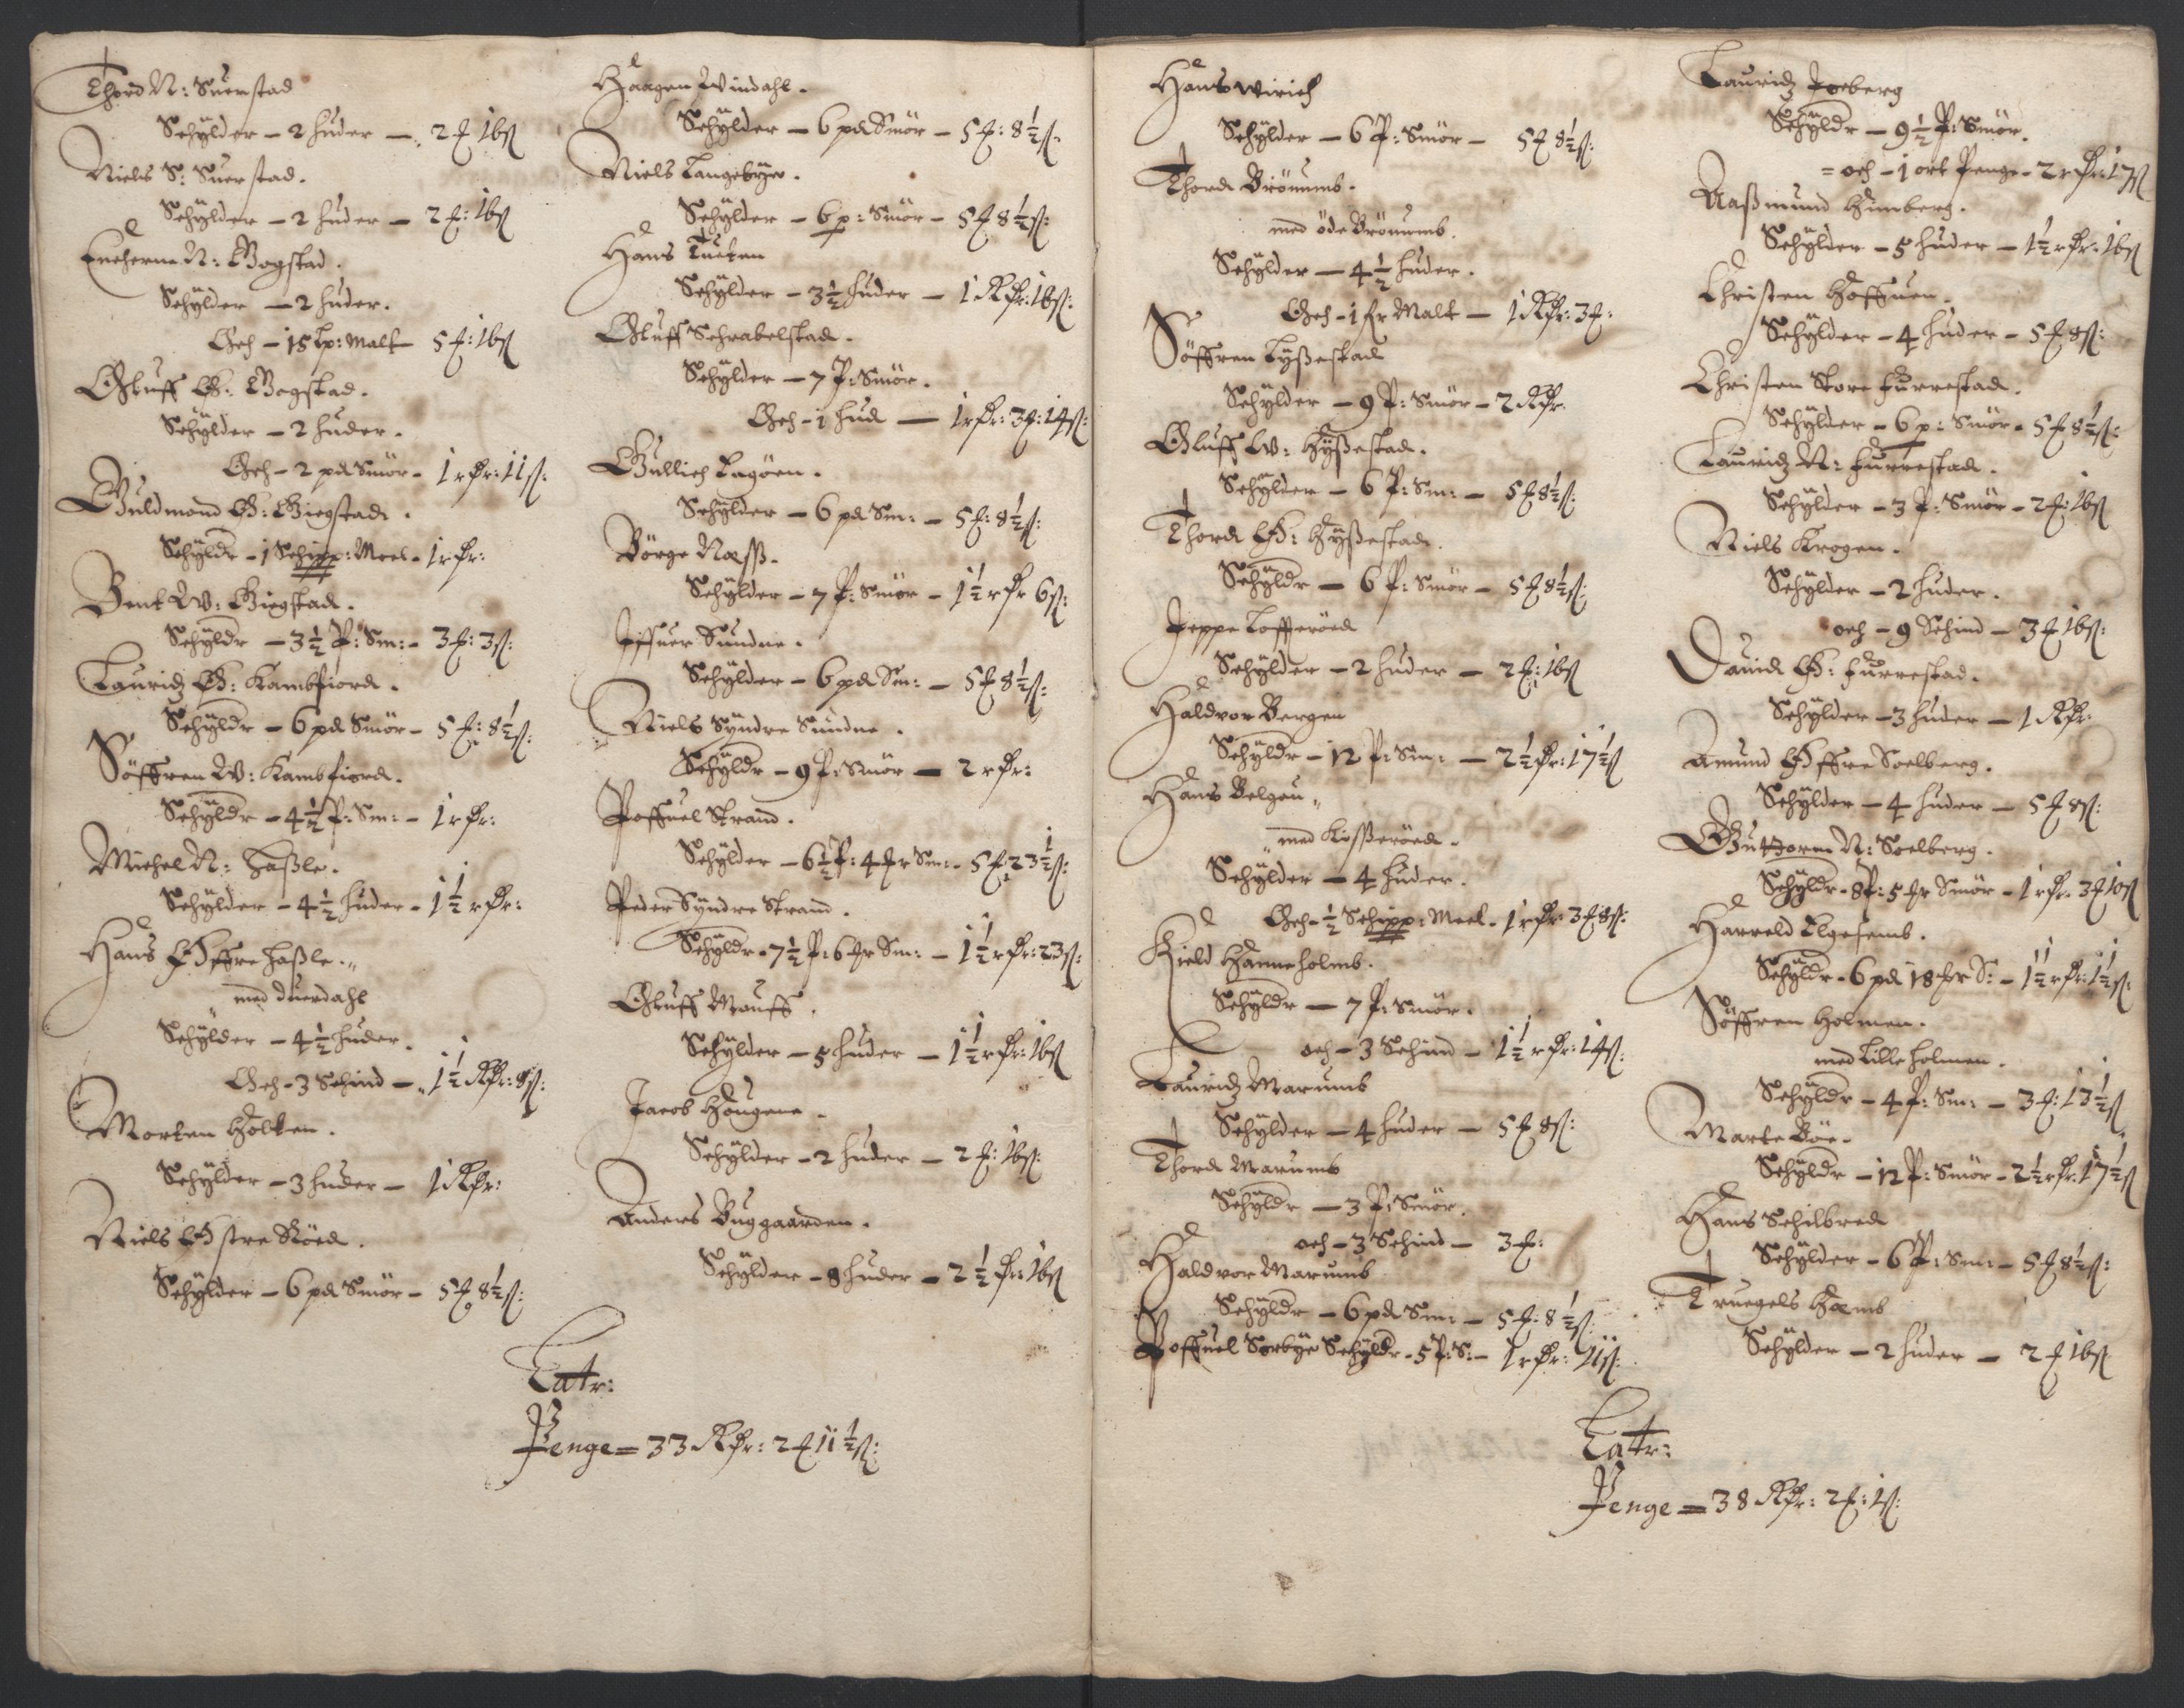 Thord N: Suerstad
Schylder – 2 huder – 2 ₰ 16 ß
Niels S: Suerstad.
Schylder – 2 huder – 2 ₰: 16 ß
Encherne N: Bogstad.
Schylder – 2 huder.
Och – 15 Lp: Malt – 5 ₰: 16 ß
Oluff Ø: Bogstad.
Schylder – 2 huder.
Och – 2 pd Smör – 1 rdr: 11 ß:
Guldmond Ø: Giegstad.
Schyldr – 1 Schipp: Meel – 1 rdr:
Bent W: Giegstad.
Schyldr – 3½ P: Sm: – 3 ₰: 3 ß:
Lauridz Ø: Kambfiord.
Schyldr – 6 pd Smör – 5 ₰: 8½ ß:
Söffren W: Kambfiord.
Schyldr – 4½ P: Sm: – 1 rdr:
Michel N: Haßle.
Schylder – 4½ huder – 1½ rdr:
Hans Øffre Haßle.
med duerdahl
Schylder – 4½ huder.
Och – 3 Schind – 1½ Rdr: 8 ß:
Morten Holtten.
Schylder – 3 huder – 1 Rdr:
Niels Østre Röed.
Schylder – 6 pd Smör – 5 ₰ 8½ ß:
Haagen Windahl.
Schylder – 6 pd Smör – 5 ₰: 8½ ß:
Niels Langebye.
Schylder – 6 p: Smör – 5 ₰ 8½ ß:
Hans Tuften
Schylder – 3½ huder – 1 Rdr: 16 ß:
Oluff Schrabelstad.
Schylder – 7 P: Smör.
Och – 1 hud – 1 rdr: 3 ₰: 14 ß:
Gullich Lagöen.
Schylder – 6 pd Sm: – 5 ₰: 8½ ß:
Börge Næss.
Schylder – 7 P: Smör – 1½ rdr 6 ß:
Iffuer Sundne.
Schylder – 6 pd Sm: – 5 ₰ 8½ ß:
Niels Syndre Sundne.
Schyldr – 9 P: Smör – 2 rdr:
Poffuel Strand.
Schylder – 6½ P: 4 mr Sm: – 5 ₰ 23½ ß:
Peder Syndre Strand.
Schyldr – 7½ P: 6 mr Sm: – 1½ rdr: 23 ß:
Oluff Mouff.
Schylder – 5 huder – 1½ rdr: 16 ß
Jacob Hougene.
Schylder – 2 huder – 2 ₰: 16 ß:
Anders Buggaarden.
Schylder – 8 huder – 2½ dr: 16 ß
Latr:
Penge = 33 Rdr: 2 ₰ 11½ ß:
Hans Wirich
Schylder – 6 P: Smör – 5 ₰ 8½ ß:
Thord Brönumb.
med öde Brönumb.
Schylder – 4½ huder.
Och – 1 fr Malt – 1 Rdr: 3 ₰:
Söffren Lyßestad
Schylder – 9 P: Smör – 2 Rdr.
Oluff W: Hyßestad.
Schylder – 6 P: Sm: – 5 ₰ 8½ ß:
Thord Ø: Hyßestad.
Schyldr – 6 P: Smör – 5 ₰ 8½ ß:
Jeppe Lofferöed
Schylder – 2 huder – 2 ₰: 16 ß
Haldvor Bergen
Schyldr – 12 P: Sm: – 2½ dr: 17½ ß
Hans Belgen
med Kißeröed.
Schylder – 4 huder.
Och – ½ Schipp: Meel – 1 rdr 3 ₰ 8 ß:
Kield Hanneholmb.
Schyldr – 7 P: Smör.
och – 3 Schind – 1½ rdr: 14 ß:
Lauridz Marumb
Schylder – 4 huder – 5 ₰ 8 ß:
Thord Marumb
Schyldr – 3 P: Smör.
och – 3 Schind – 3 ₰:
Haldvor Marumb
Schyldr – 6 pd Sm: – 5 ₰: 8½ ß:
Poffuel Sorbye Schyldr – 5 P: S: – 1 rdr: 11 ß:
Lauridz Joeberg
Schyldr – 9½ P: Smör.
= och – 1 ort Penge – 2 rdr: 17 ß
Aaßmund Himberg.
Schylder – 5 huder – 1½ rdr: 16 ß
Christen Hoffuen.
Schylder – 4 huder – 5 ₰ 8 ß:
Christen Store Furrestad.
Schylder – 6 p: Smör – 5 ₰ 8½ ß:
Lauridz N: Furrestad.
Schylder – 3 P: Smör – 2 ₰: 16 ß
Niels Krogen.
Schylder – 2 huder.
och – 9 Schind – 3 ₰ 16 ß:
Dauid Ø: Furrestad.
Schylder – 3 huder – 1 Rdr:
Amund Øffre Soelberg.
Schylder – 4 huder – 5 ₰ 8 ß:
Guttorm N: Soelberg.
Schyldr – 8 P: 5 mr Smör – 1 rdr: 3 ₰ 10 ß
Harreld Elgesemb.
Schyldr – 6 pd 18 mr S: – 1½ rdr: 1½ ß:
Söffren Holmen.
med Lille holmen.
Schyldr – 4 P: Sm: – 3 ₰: 13½ ß
Marte Böe.
Schyldr – 12 P: Smör – 2½ rdr: 17½ ß
Hans Schilbred
Schylder – 6 P: Sm: – 5 ₰ 8½ ß:
Truegels Hæmb
Schylder – 2 huder – 2 ₰ 16 ß
Latr:
Penge = 38 Rdr: 2 ₰: 1 ß: